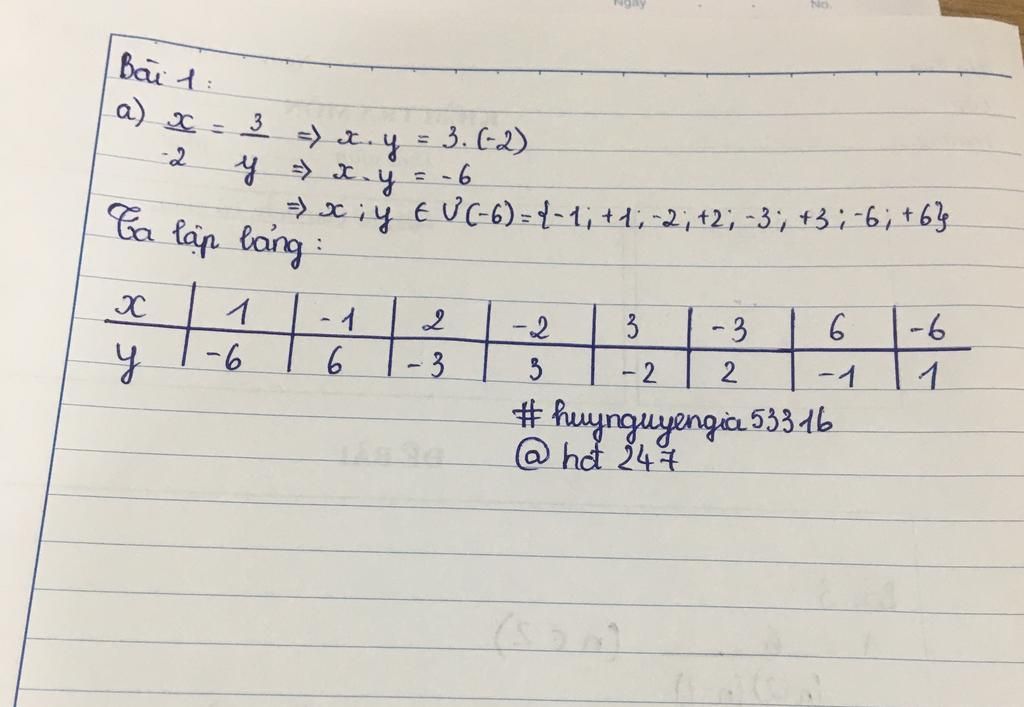 Ngày
No.
Bài 1:
a) x/-2 = 3/y => x.y = 3.(-2)
=> x.y = -6
=> x;y ∈ Ư(-6)={-1;+1;-2;+2;-3;+3;-6;+6}
Ta lập bảng:
x 1 -1 2 -2 3 -3 6 -6
y -6 6 -3 3 -2 2 -1 1
# huynguyengia53316
@ hdt 247